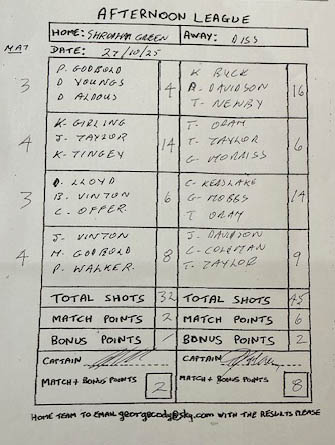 AFTERNOON LEAGUE
HOME: SHROPHAM GREEN AWAY: DISS
MAT DATE: 27/10/25
P. GODBOLD K BUCK
3 D YOUNGS 4 A. DAVIDSON 16
D ALDOUS T- NEWBY
K- GIRLING T- ORAM
4 J- TAYLOR 14 T- TAYLOR 6
K- TINGEY G- MORRISS
D. LLOYD C- KERSLAKE
3 B. VINTON 6 G- MOBBS 14
C. OFFER. T ORAM
J- VINTON J- DAVIDSON
4 M. GODBOLD 8 C- COLEMAN 9
P. WALKER. T- TAYLOR
TOTAL SHOTS 32 TOTAL SHOTS 45
MATCH POINTS 2 MATCH POINTS 6
BONUS POINTS / BONUS POINTS 2
CAPTAIN CAPTAIN
MATCH + BONUS POINTS 2 MATCH + BONUS POINTS 8
HOME TEAM TO EMAIL georgecody@sky.com WITH THE RESULTS PLEASE